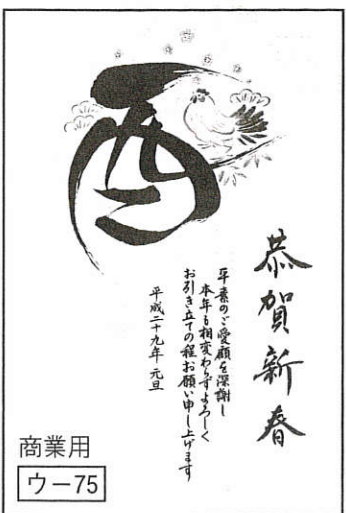 酉
恭賀新春
平素のご愛顧を深謝し
本年も相変わらずよろしく
お引き立ての程お願い申し上げます
平成二十九年 元旦
商業用
ウー75